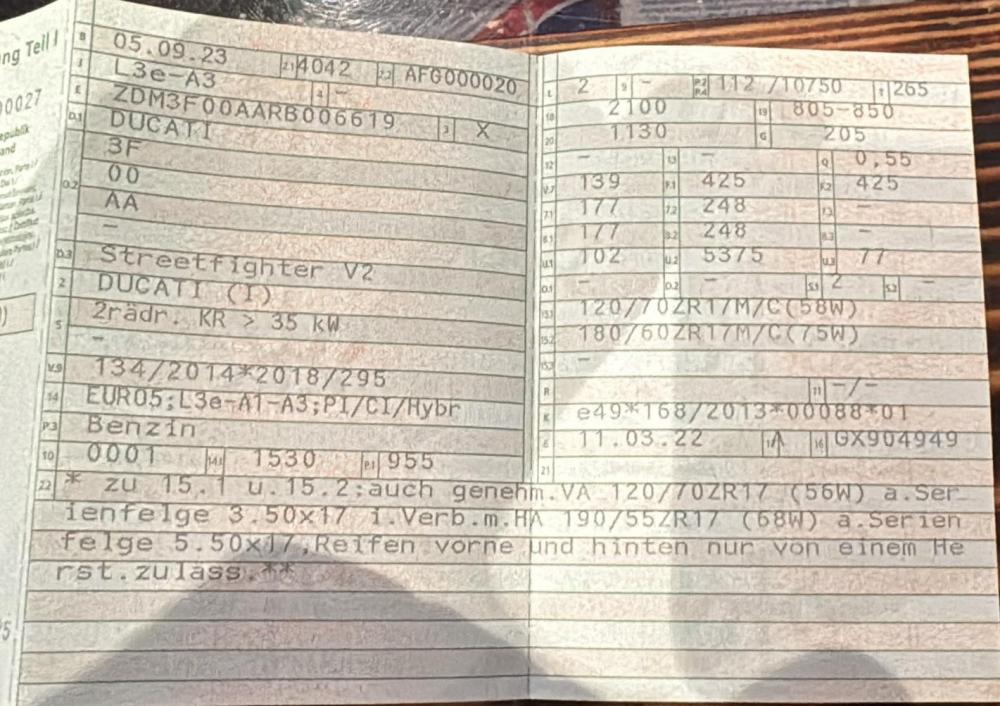 ng Teil I
B 05.09.23 2.1 4042 2.2 AFG000020
J L3e-A3 4 -
E ZDM3F00AARB006619 3 X
D.1 DUCATI
3F
D.2 00
AA
-
D.3 Streetfighter V2
2 DUCATI (I)
5 2rädr. KR > 35 kW
-
V.9 134/2014*2018/295
14 EURO5;L3e-A1-A3;PI/CI/Hybr
P.3 Benzin
10 0001 14.1 1530 P.1 955
L 2 9 - P.2 P.4 112 /10750 T 265
18 2100 19 805-850
20 1130 G 205
12 - 13 - Q 0,55
V.7 139 F.1 425 F.2 425
7.1 177 7.2 248 7.3 -
8.1 177 8.2 248 8.3 -
U.1 102 U.2 5375 U.3 77
O.1 - O.2 - S.1 2 S.2 -
15.1 120/70ZR17/M/C(58W)
15.2 180/60ZR17M/C(75W)
15.3 -
R 11 -/-
K e49*168/2013*00088*01
6 11.03.22 17 A 16 GX904949
21
22 * zu 15.1 u.15.2;auch genehm.VA 120/70ZR17 (56W) a.Ser
ienfelge 3.50x17 i.Verb.m.HA 190/55ZR17 (68W) a.Serien
felge 5.50x17,Reifen vorne und hinten nur von einem He
rst.zulass.**